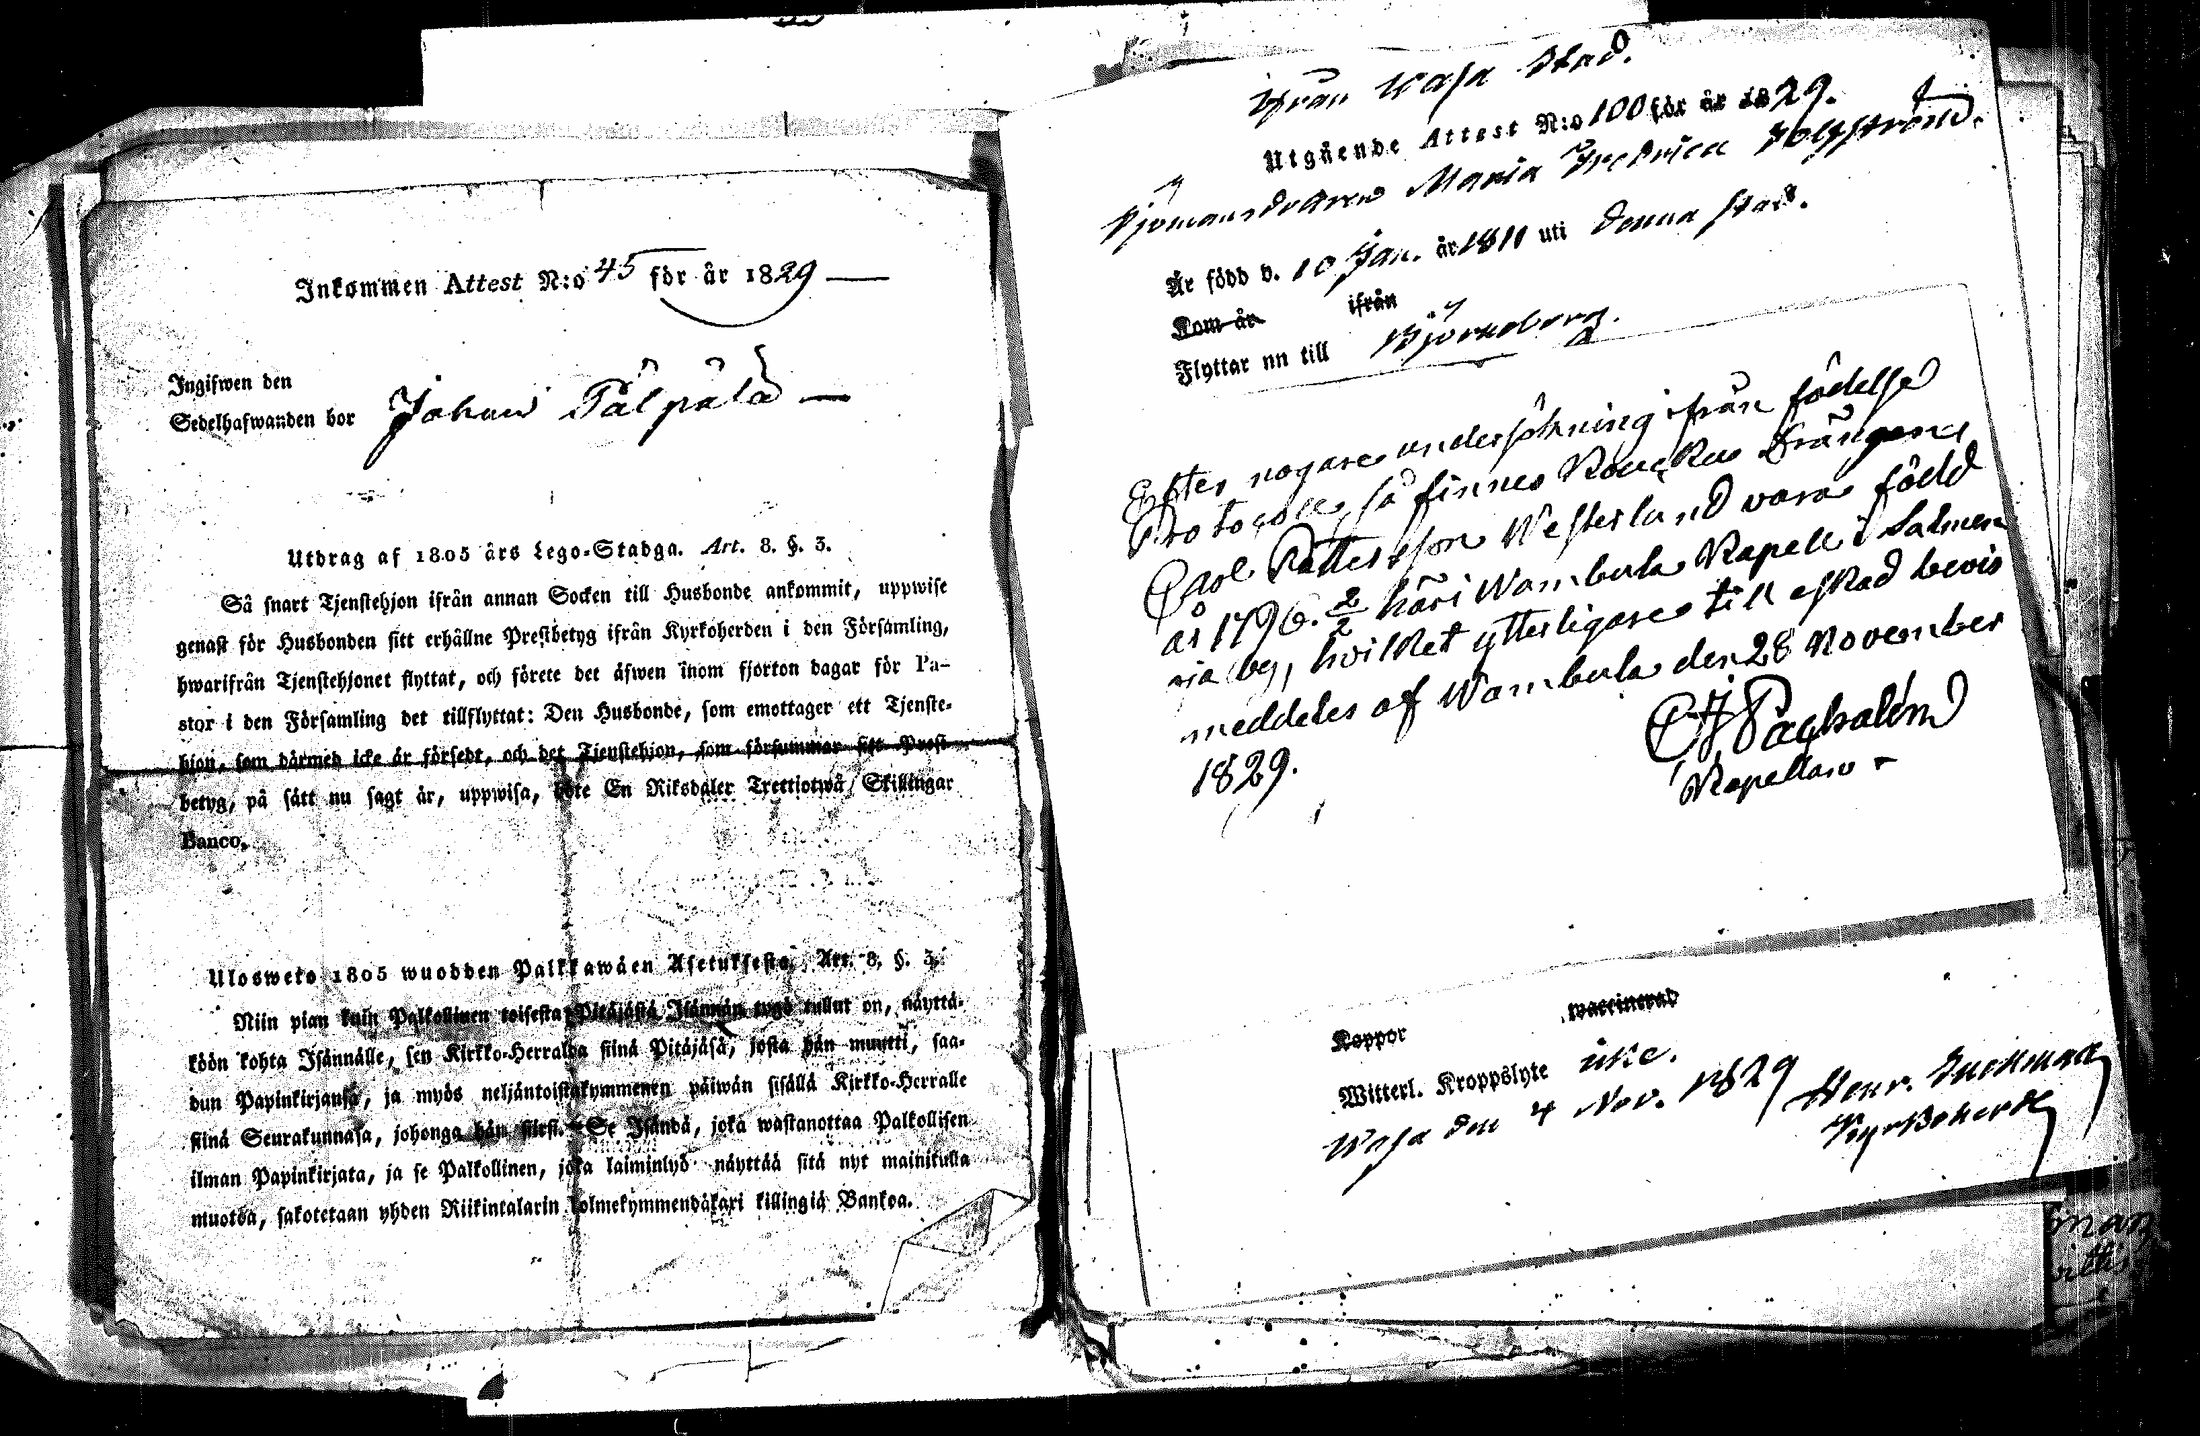 Inkommen Attest N:o 45 för år 1829
Ingifwen den
Sedelhafwanden bor Johan Tälpälä
Utdrag af 1805 års Lego-Stadga. Art. 8. §. 3.
Så snart Tjenstehjon ifrån annan Socken till Husbonde ankommit, uppwise
genast för Husbonden sitt erhållne Prestbetyg ifrån Kyrkoherden i den Församling,
hwarifrån Tjenstehjonet flyttat, och förete det äfwen inom fjorton dagar för Pa-
stor i den Församling det tillflyttat: Den Husbonde, som emottager ett Tjenste-
hjon, som därmed icke är försedt, och det Tjenstehjon, som försummar sitt Prest-
betyg, på sätt nu sagt är, uppwisa, böte En Riksdaler Trettiotwå Skillingar
Banco.
Ulosweto 1805 wuodden Palkkawäen Asetuksesta, Art. 8. §. 3.
Niin pian kuin Palkollinen toisesta Pitäjästä Isännän tygö tullut on, näyttä-
köön kohta Isännälle, sen Kirkko-Herralda siinä Pitäjäsä, josta hän muutti, saa-
dun Papinkirjansa, ja myös neljäntoistakymmenen päiwän sisällä Kirkko-Herralle
siinä Seurakunnasa, johonga hän siirsi. Se Isändä, joka wastanottaa Palkollisen
ilman Papinkirjata, ja se Palkollinen, joka laiminlyö näyttää sitä nyt mainitulla
muotoa, sakotetaan yhden Riikintalarin kolmekymmendäkaxi killingiä Bankoa.
Ifrån Wasa Stad.
Utgående Attest N:o 100 för år 1829.
Sjömansdottren Maria Fredrica
Är född d. 10 Jan. år 1811 uti denna stad.
Kom år ifrån
Flyttar nn till Björneborg.
Efter nogare undersökning ifrån födelse
Protocoll, så finnes Drängen
Carl Pettersson Westerlund vara född
år 1796. 2/2 här i Wambula Kapell i
hvilket ytterligare till eskad bevis
meddeles af Wambula den 28 November
1829.
Kapellan
Koppor waccinerad
Witterl. Kroppslyte icke.
Wasa den 4 Nov. 1829 Henr.
Kyrkoherde